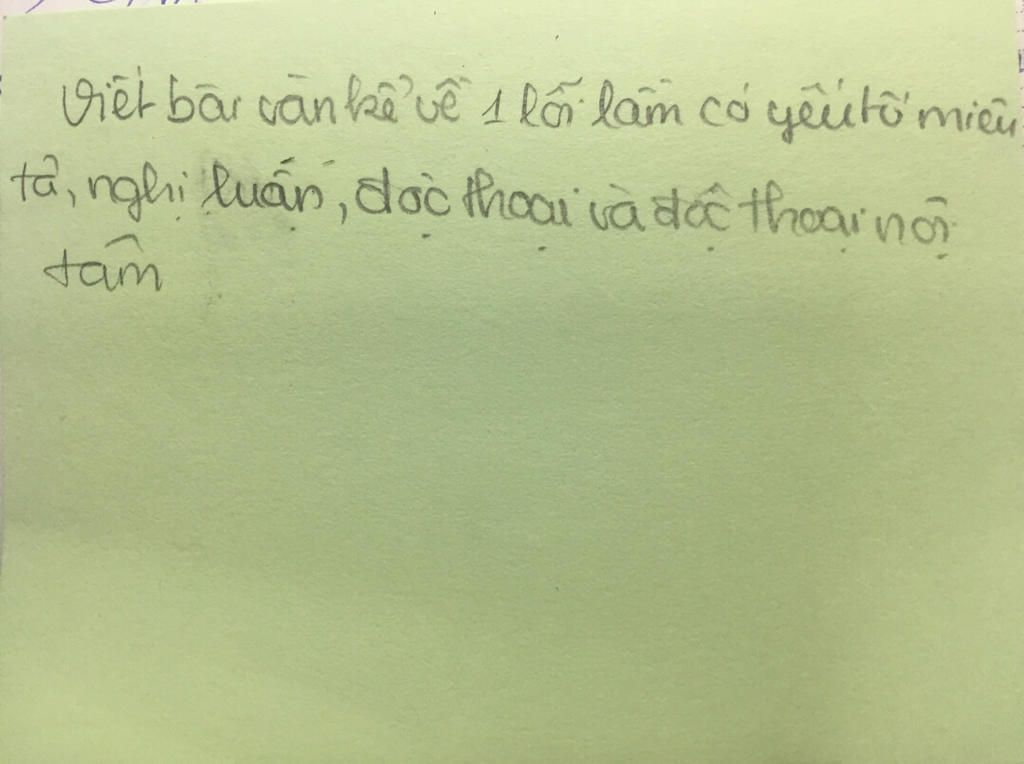 Viết bài văn kể về 1 lỗi lầm có yếu tố miêu
tả, nghị luận, độc thoại và độc thoại nội
tâm